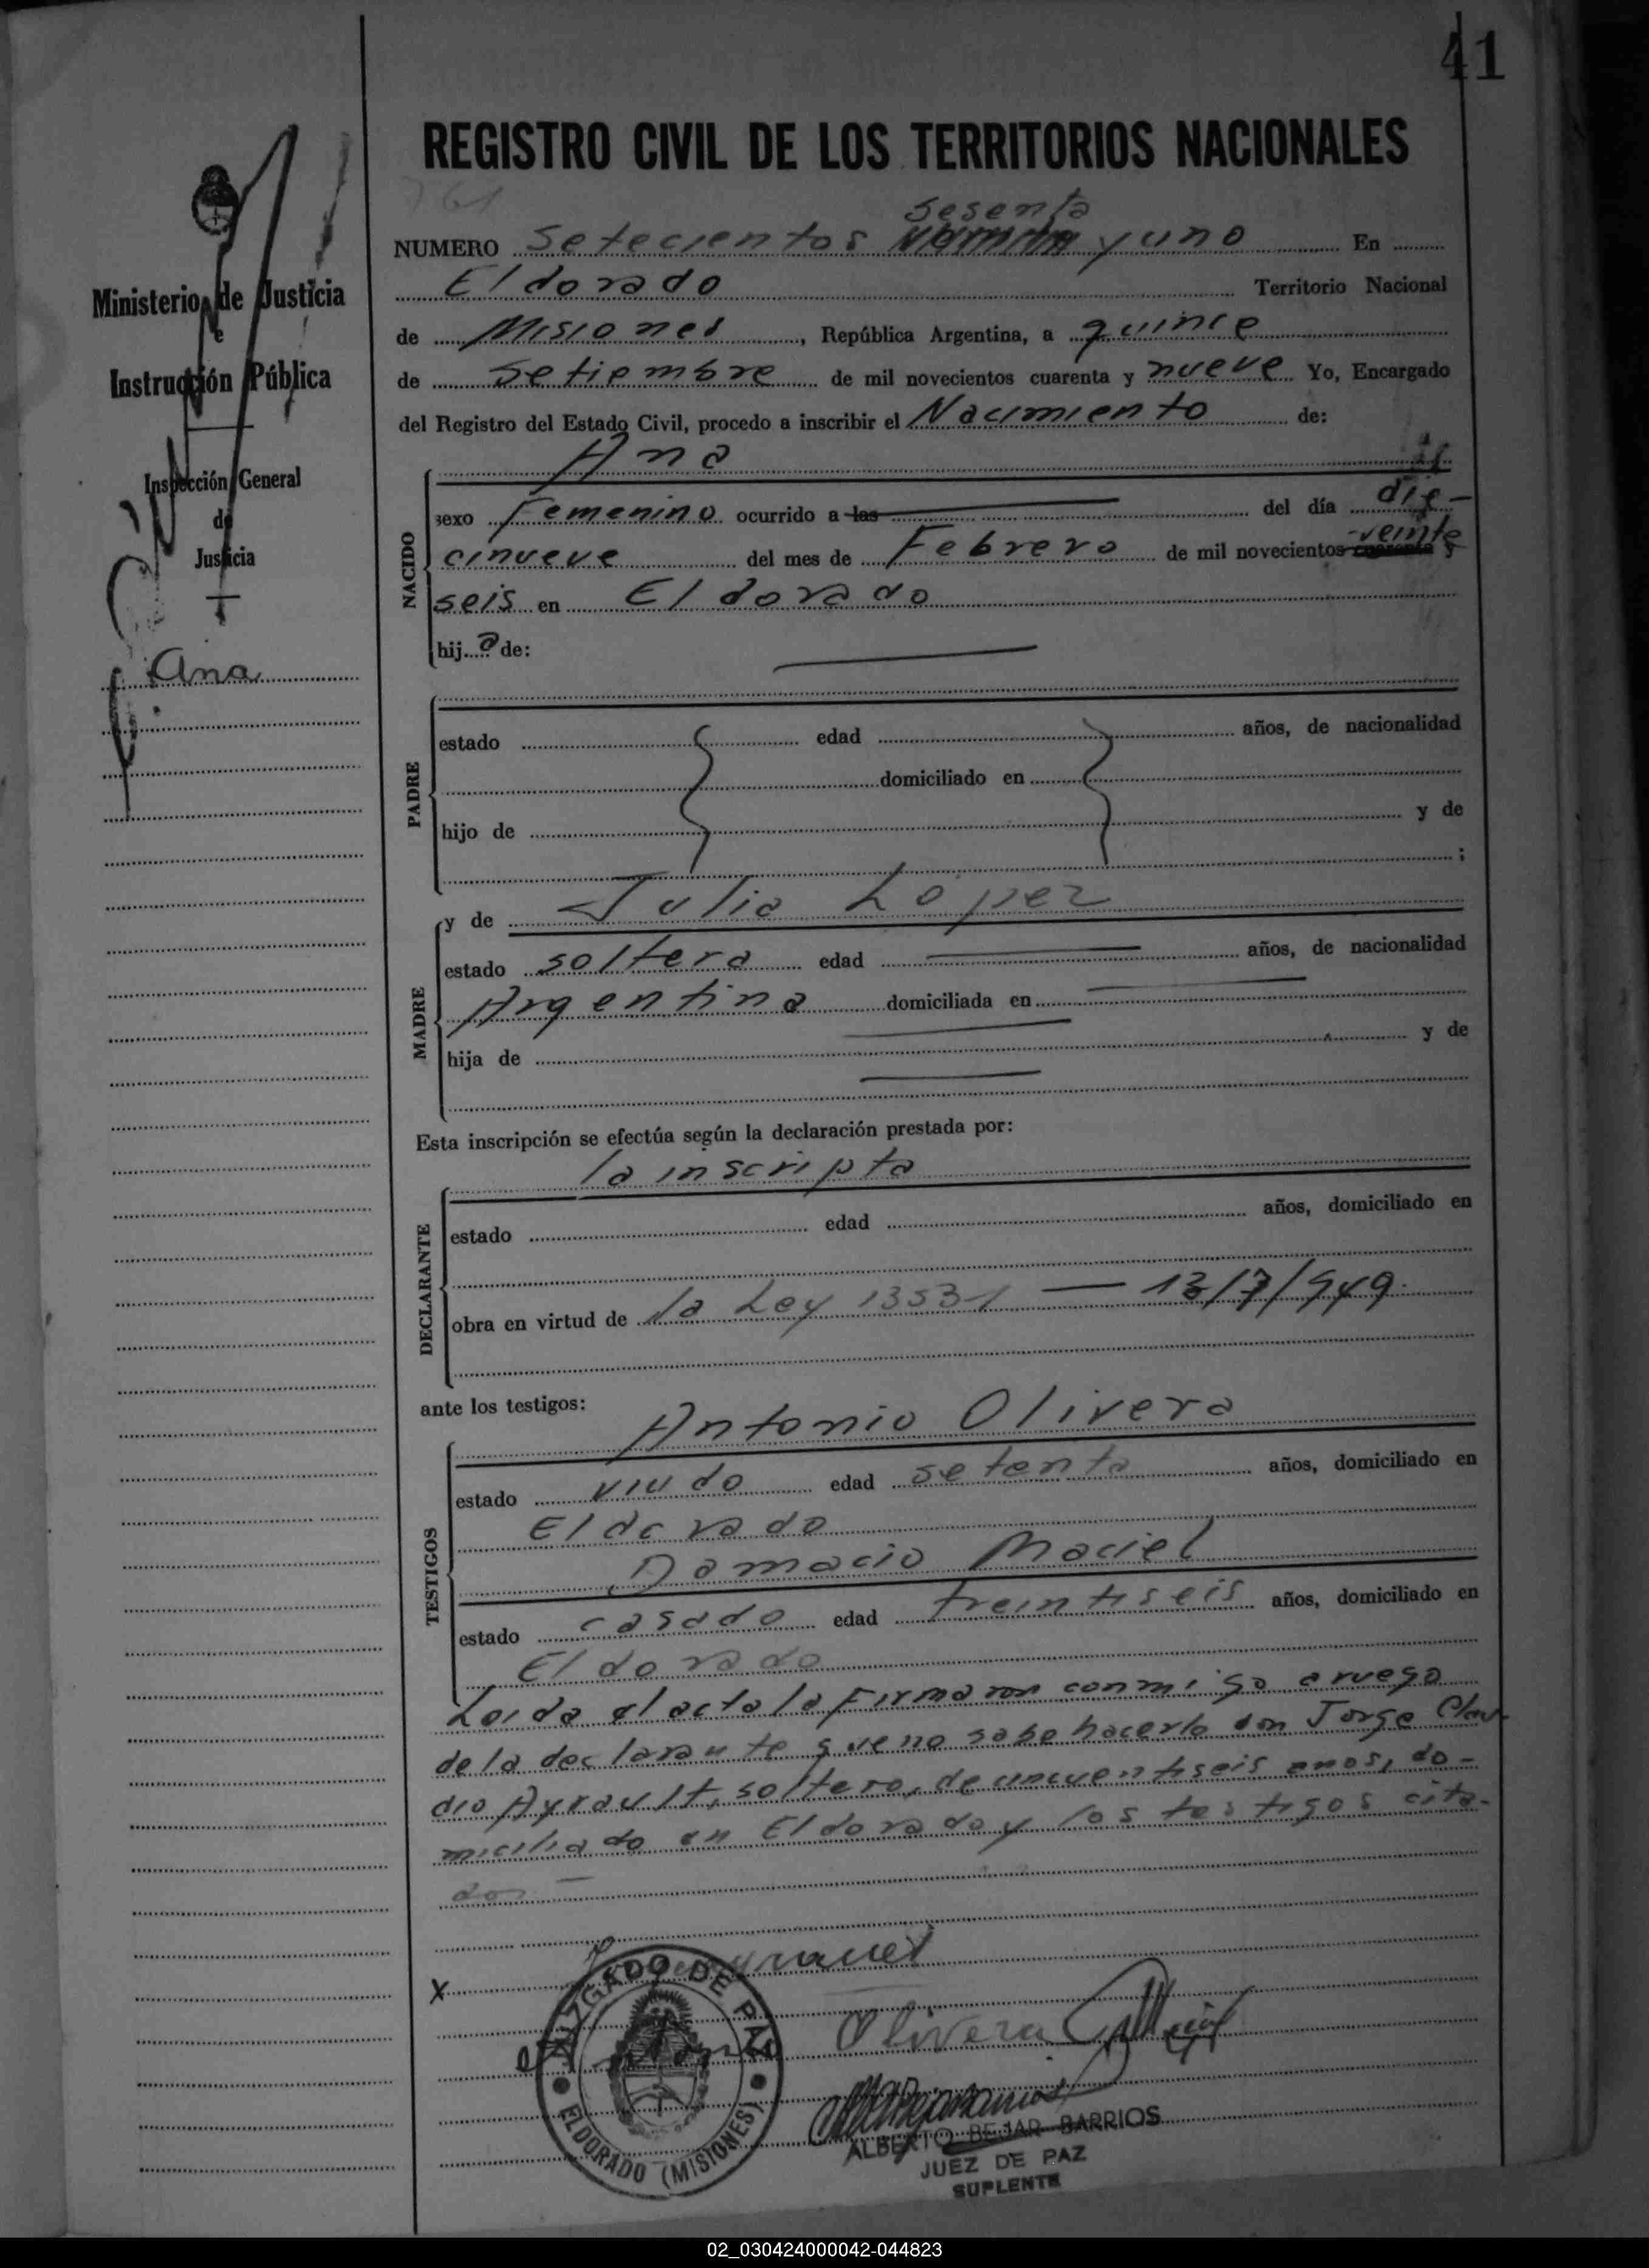 41
REGISTRO CIVIL DE LOS TERRITORIOS NACIONALES
761
sesenta
NUMERO setecientos y uno En
Eldorado Territorio Nacional
de Misiones, República Argentina, a quince
de Setiembre de mil novecientos cuarenta y nueve Yo, Encargado
del Registro del Estado Civil, procedo a inscribir el Nacimiento de:
Ministerio de Justicia
e
Instrucción Pública
Inspección General
de
Justicia
Ana
NACIDO
Ana
sexo femenino ocurrido a las del día die-
cinueve del mes de Febrero de mil novecientos cuarenta veinte y
seis en Eldorado
hij a de:
PADRE
estado edad años, de nacionalidad
domiciliado en
hijo de y de
;
MADRE
y de Julia Lopez
estado soltera edad años, de nacionalidad
Argentina domiciliada en
hija de y de
Esta inscripción se efectúa según la declaración prestada por:
DECLARANTE
la inscripta
estado edad años, domiciliado en
obra en virtud de la Ley 13531 — 13/7/949.
ante los testigos:
TESTIGOS
Antonio Olivera
estado viudo edad setenta años, domiciliado en
Eldorado
Damacio Maciel
estado casado edad treintiseis años, domiciliado en
Eldorado
Leida el acta la firmaron conmigo a ruego
de la declarante que no sabe hacerlo don Jorge Clau-
dio Ayrault, soltero, de cincuentiseis anos, do-
miciliado en Eldorado y los testigos cita-
dos —
X
Olivera
JUZGADO DE PAZ
ELDORADO (MISIONES)
ALBERTO BEJAR BARRIOS
JUEZ DE PAZ
SUPLENTE
02_030424000042-044823